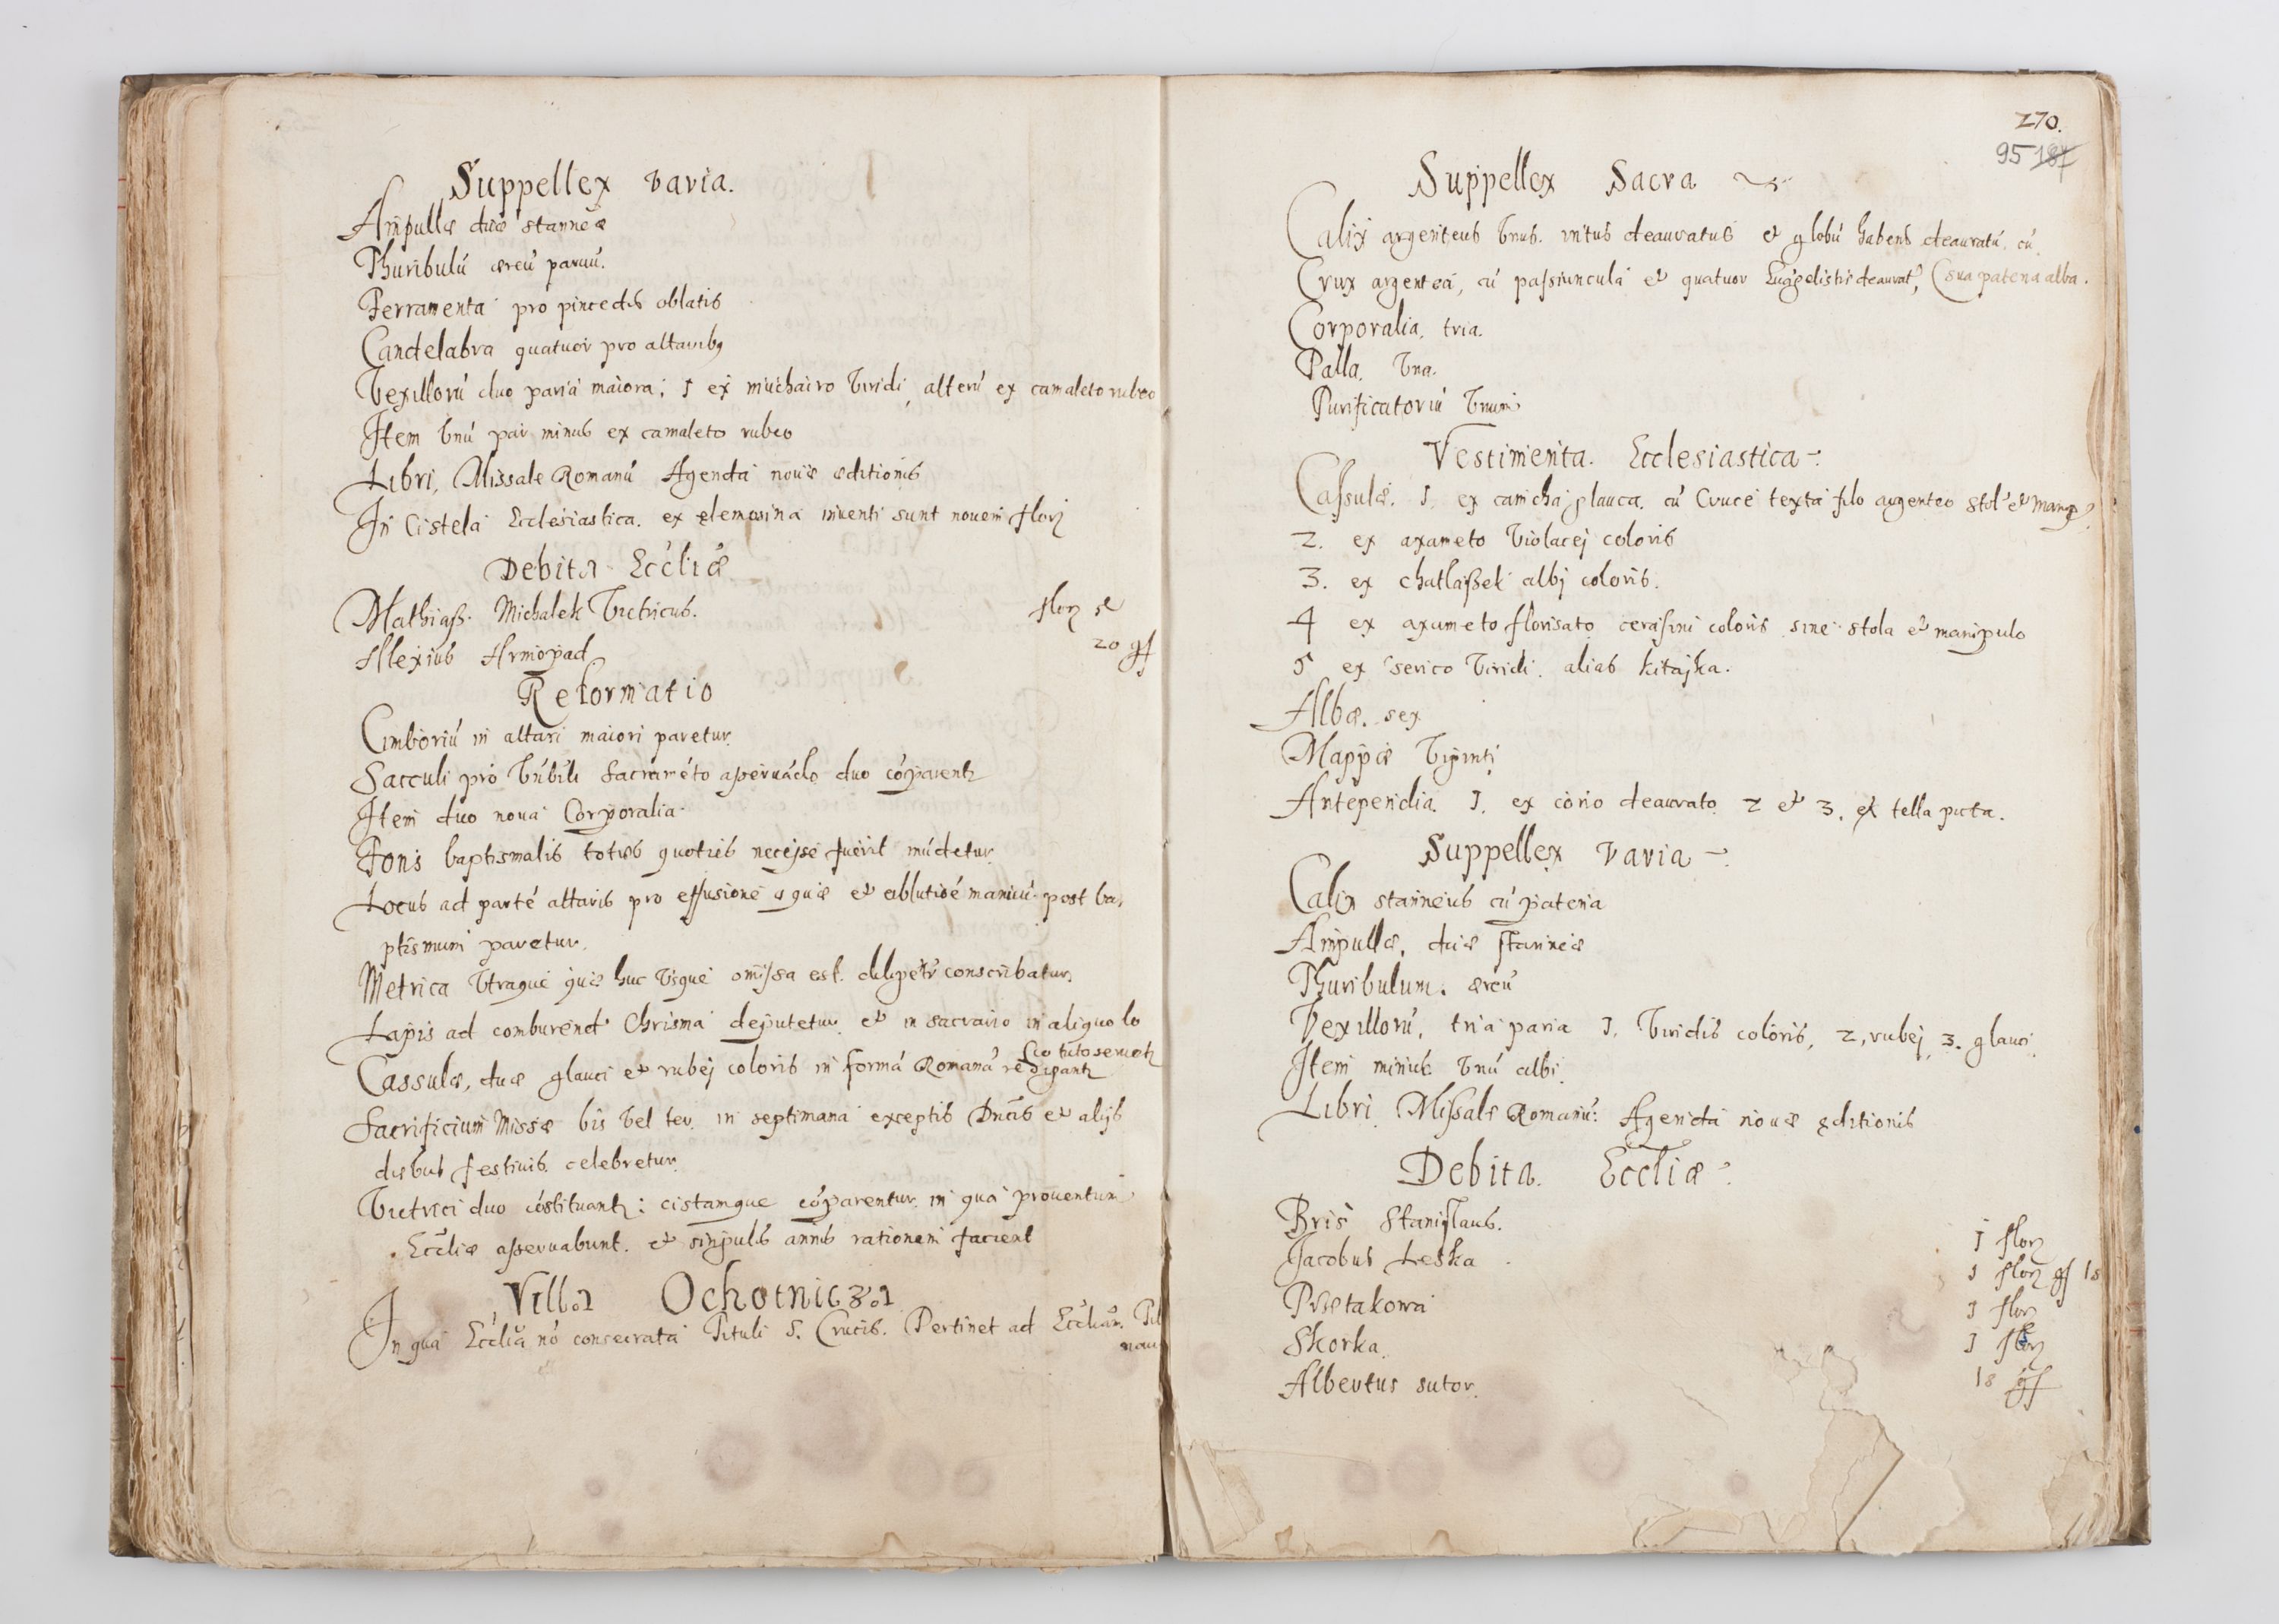 Suppellex varia.
Ampullæ duæ stanneæ
Thuribulú æreú paruú.
Ferramenta pro pinsedis oblatis
Candelabra quatuor pro altaribꝯ
Vexillorú duo paria maiora; 1 ex muchairo viridi, alterú ex camaleto rubeo
Item vnú par minus ex camaleto rubeo
Libri, Missale Romanú Agenda nouæ æditionis
In Cistela Ecclesiastica. ex elemosina inuenti sunt nouem flor
Debita Eccliæ
Mathiass. Michalek Vitricus. flor
Alexius 20 gſ
Reformatio
Cimboriú in altari maiori paretur.
Sacculi pró Sacraméto aſseruádo duo cóparent
Item duo noua Corporalia
Fons baptismalis toties quoties neceſse fuerit múdetur.
Locus ad parté altaris pro effusione aquæ et ablutióe manuú post ba,
ptismum paretur.
Metrica vtraque quæ huc vsque omiſsa est. conscribatur.
Lapis ad comburend Chrisma deputetur et in sacrario in aliquo lo
co tuto seruet
Cassulæ, duæ glauci et rubej coloris in formá Romaná redigant
Sacrificium Missæ bis vel ter in septimana exceptis Dnicis et alijs
diebus festiuis. celebretur.
Vitrici duo cóstituant: cistamque cóparentur, in qua prouentum
Eccliæ aſseruabunt. et singulis annis rationem facient
Villa Ochotnicza
In qua Ecclia nó consecrata Tituli S. Crucis. Pertinet ad Eccliam.
270.
95 187
Suppellex Sacra
Calix argenteus vnus. intus deauratus et globú habens deauratú, cú
Crux argentea, cú paſsiuncula et quatuor deaurat, (sua patena alba.
Corporalia, tria.
Palla, vna.
Purificatoriú vnum
Vestimenta. Ecclesiastica
Caſsulæ. 1. ex camcha glauca. cú Cruce texta filo argenteo stol et manip
2. ex axameto violacej coloris
3. ex chatlaſsek albj coloris.
4 ex axameto florisato ceraſini coloris sine stola et manipulo
5 ex serico viridi. alias kitajka.
Albæ. sex
Mappæ viginti
Antependia. 1. ex corio deaurato 2 et 3. ex tella picta.
Suppellex varia
Calix stanneus cú patena
Ampullæ, duæ stanneæ
Thuribulum. æreú
Vexillorú, tria paria 1. viridis coloris, 2, rubej, 3. glauci.
Item minus vnú albi.
Libri. Miſsale Romanú: Agenda nouæ editionis
Debita. Eccliæ
Bris Staniſlaus. 1 flor
Jacobus Leska 1 flor gſ 18
Pixtakowa 1 flor
Skorka 1 flor
Albertus sutor. 18 gſ